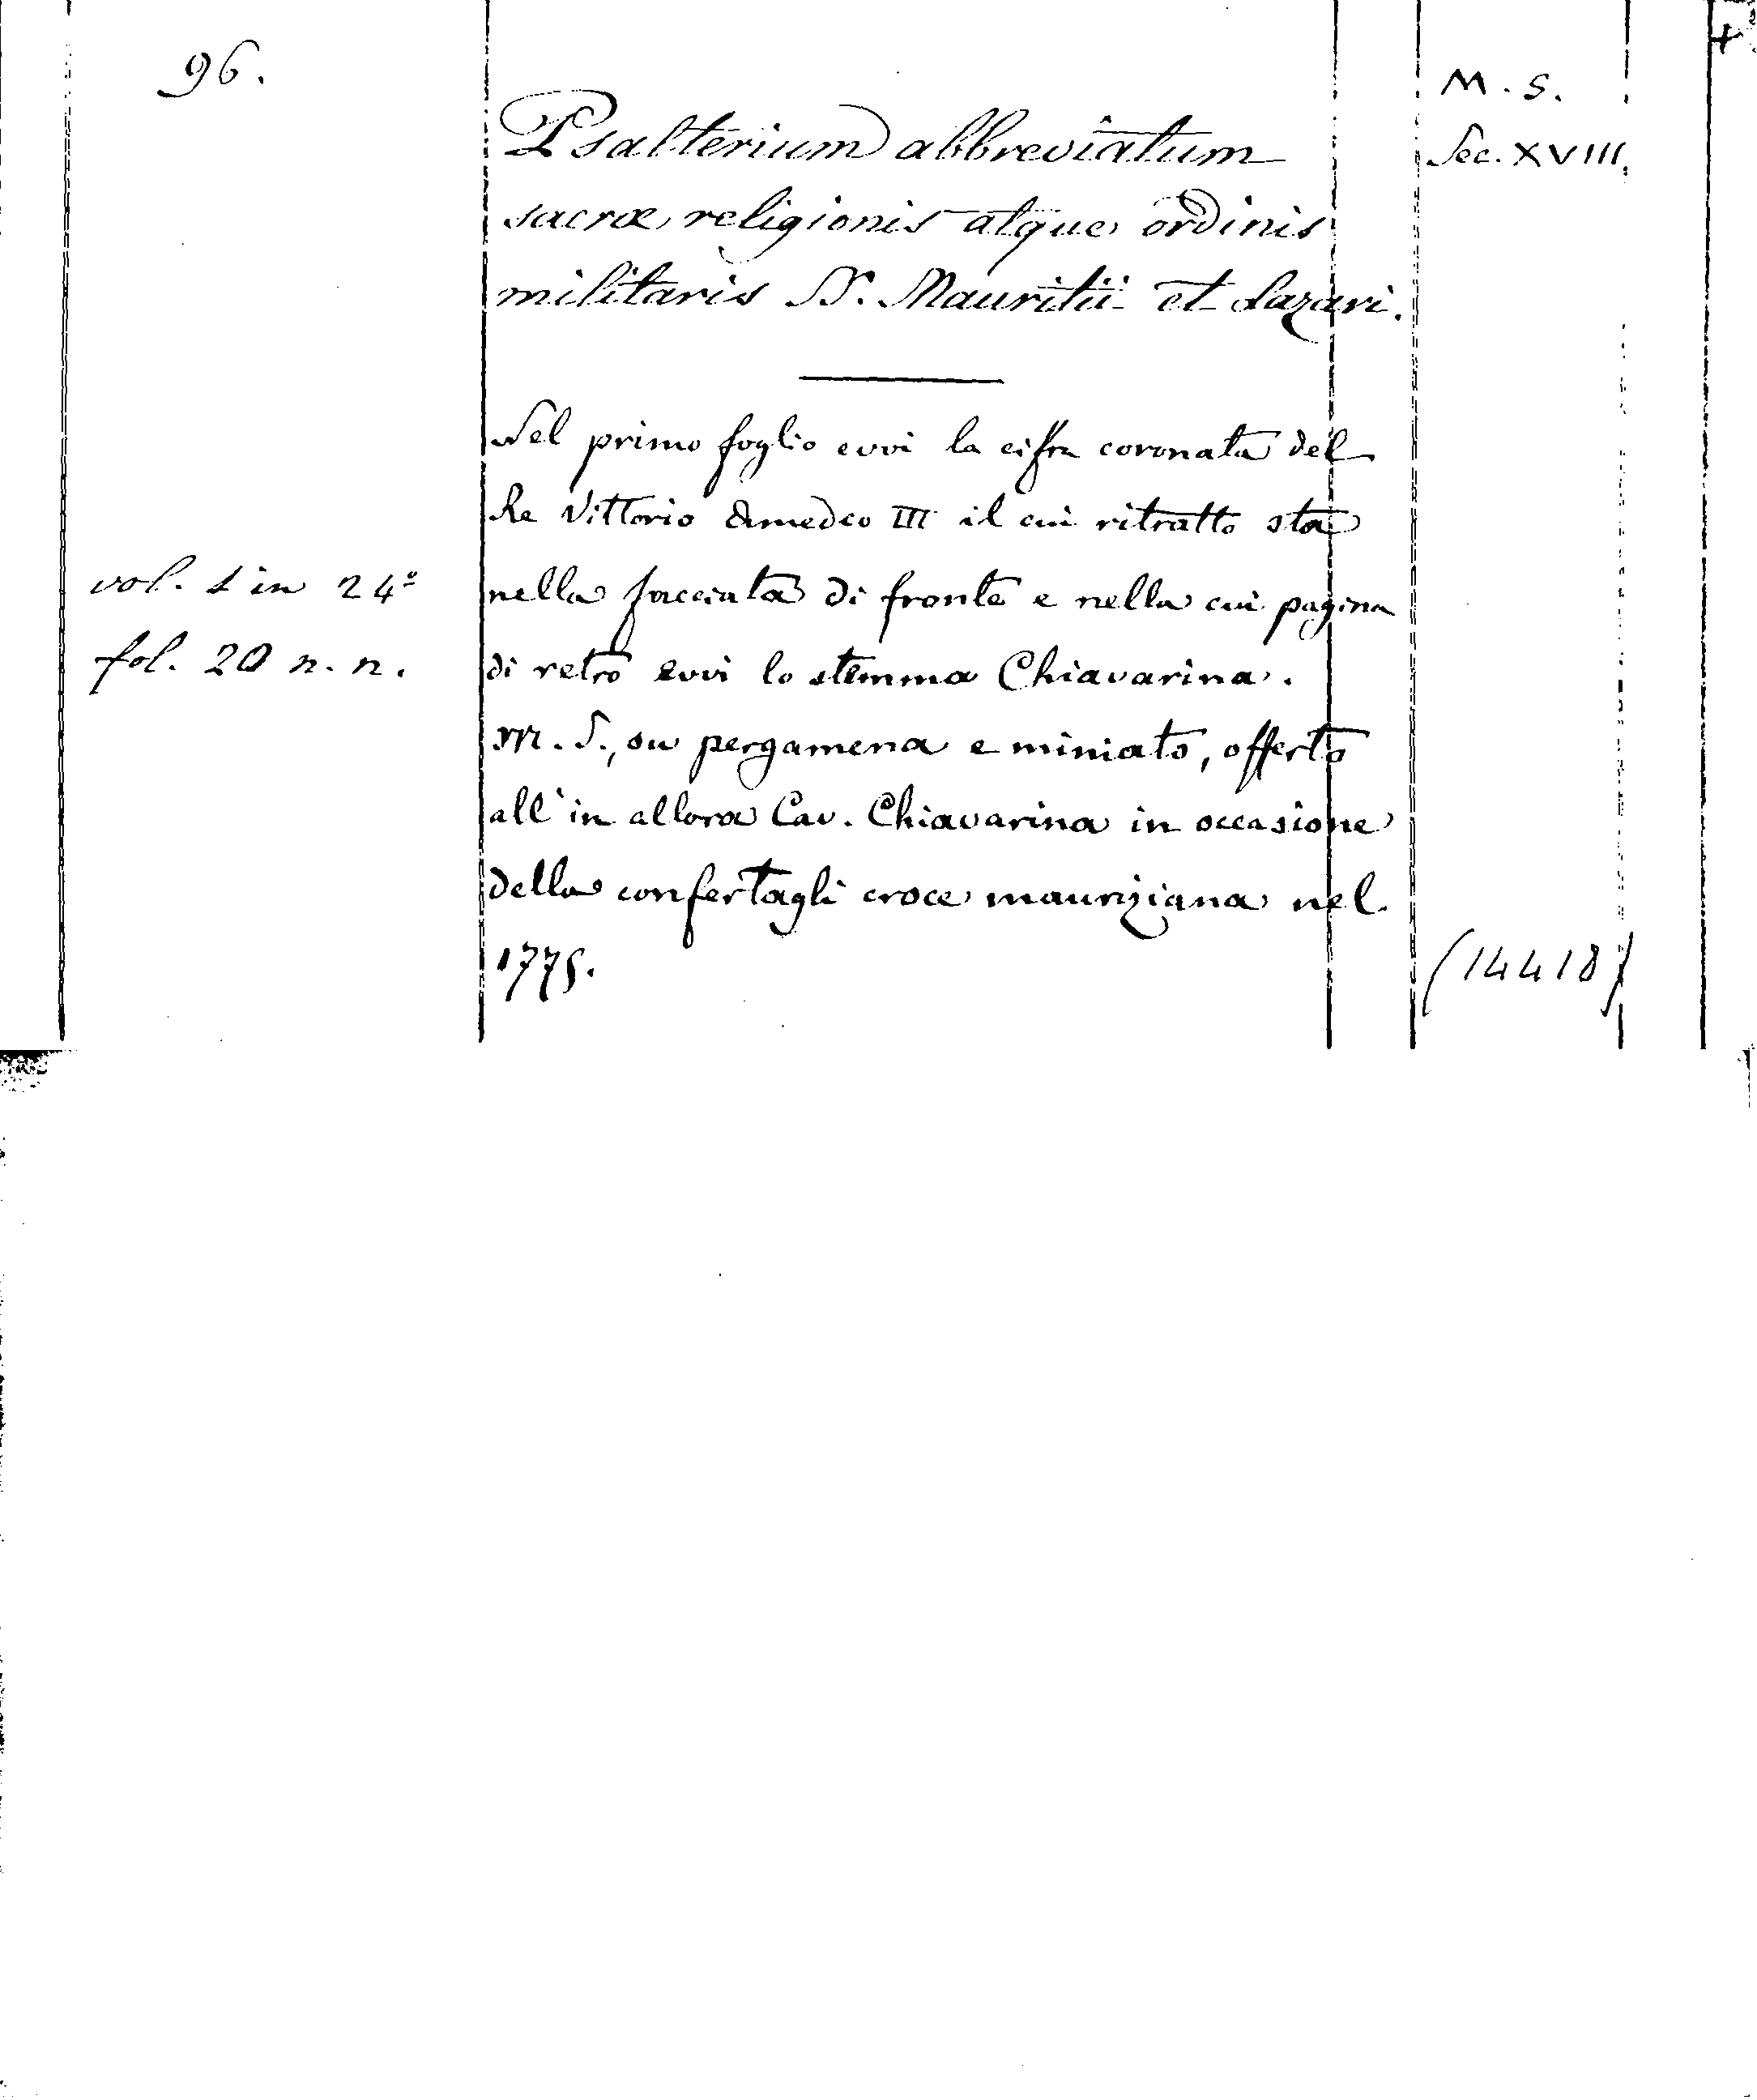 96.
M. S.
Sec. XVIII.
Psalterium abbreviatum
sacræ religionis atque ordinis
militaris SS. Mauritii et Lazari.
Nel primo foglio evvi la cifra coronata del
Re Vittorio Amedeo III il cui ritratto sta
nella facciata di fronte e nella cui pagina
di retro evvi lo stemma Chiavarina.
M. S., su pergamena e miniato, offerto
all'in allora Cav. Chiavarina in occasione
della confertagli croce mauriziana nel
1775.
vol. 1 in 24º
fol. 20 n. n.
(14418)